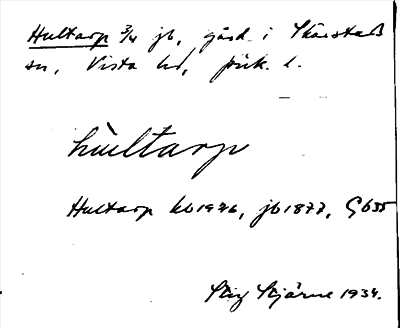 Hultarp 3/4 jb, gård i Skärstad
sn, Vista hd, Jönk. l.
hultarp
Hultarp kb 1926, jb 1877, Gb 35
Stig Stjärne 1934.